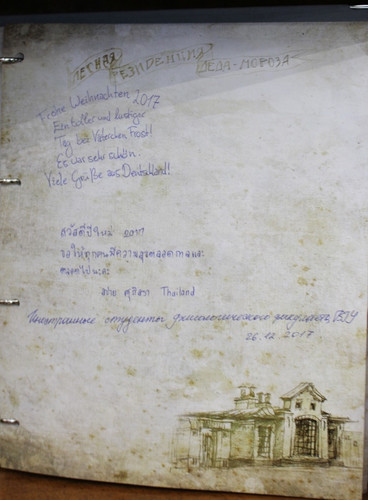 ЛЕТНЯЯ РЕЗИДЕНЦИЯ ДЕДА-МОРОЗА
Weihnachten 2017
Ein toller und lustiger
Tag bei Väterchen Frost!
Es war sehr schön.
Viele Grüße aus Deutschland!
สวัสดีปีใหม่ ๒๐๑๗
ขอให้ทุกคนมีความสุขตลอดกาลและ
ตลอดไปนะคะ
Thailand
Иностранные студенты филологического факультета, ВГУ
26.12.2017